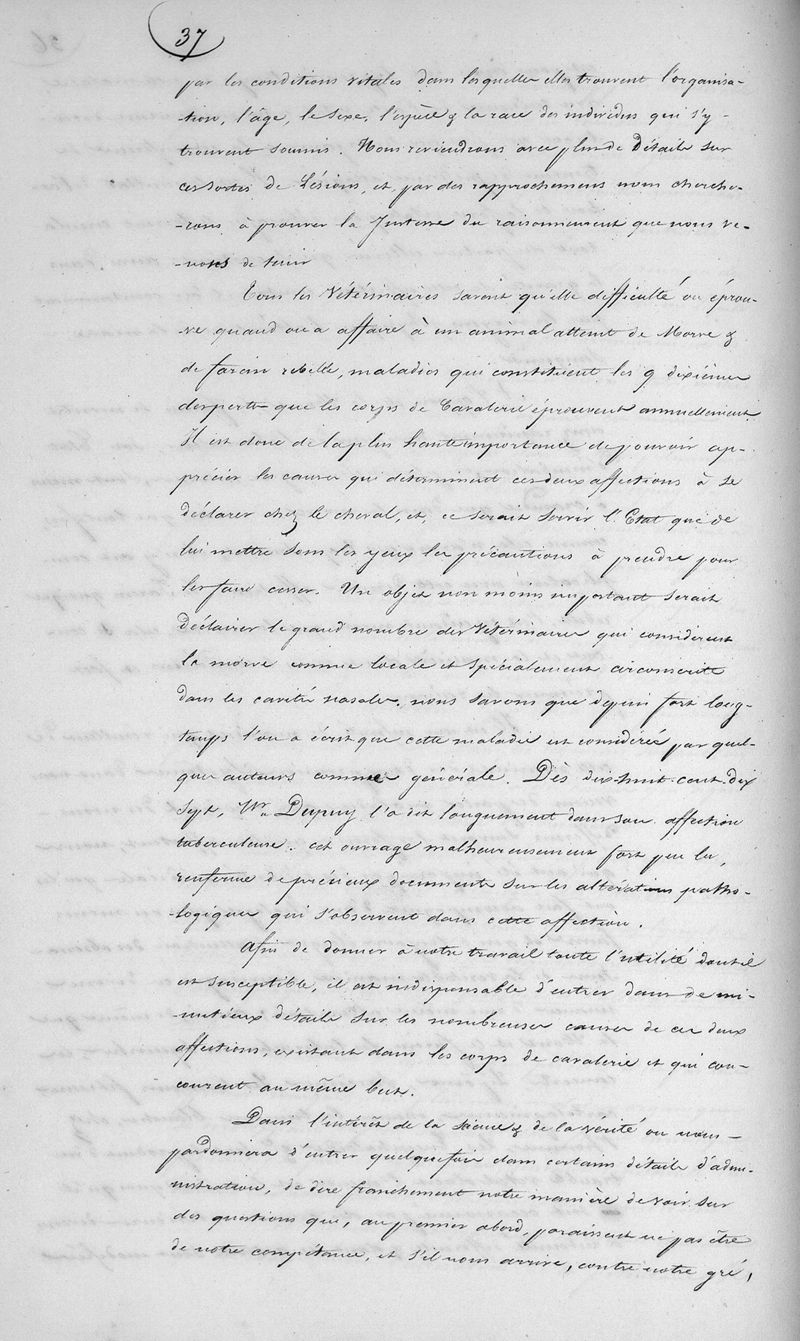 37
par les conditions vitales dans lesquelles elles trouvent l'organisa-
tion, l'âge, le sexe, l'espèce & la race des individus qui s'y
trouvent soumis. Nous reviendrons avec plus de Détails sur
ces sortes de Lésions, et, par des rapprochemens nous cherche-
-rons à prouver la Justesse du raisonnement que nous ve-
-nons de tenir
Tous les Vétérinaires savent qu'elle difficulté on éprou-
ve quand on a affaire à un animal atteint de Morve &
de farcin rebelle, maladies qui constituent les 9 dixièmes
des perts que les corps de Cavalerie éprouvent annuellement.
Il est donc de la plus haute importance de pouvoir ap-
précier les causes qui déterminent ces deux affections à se
déclarer chez le cheval, et, ce serait servir l'Etat que de
lui mettre sous les yeux les précautions à prendre pour
les faire cesser. Un objet non moins important serait
d'éclairer le grand nombre des Vétérinaires qui considèrent
la morve comme locale et spécialement circonscrite
dans les cavités nasales. nous savons que depuis fort long-
temps l'on a écrit que cette maladie est considérée par quel-
que auteurs comme générale. Dès dix-huit-cent-dix
sept, Mr. Dupuy l'a dit longuement dans son affection
tuberculeuse. cet ouvrage malheureusement fort peu lu,
renferme de précieux documents sur les altérations patho-
-logiques qui s'observent dans cette affection.
Afin de donner à notre travail toute l'utilité dont il
est susceptible, il est indispensable d'entrer dans de mi-
nutieux détails sur les nombreuses causes de ces deux
affections, existant dans les corps de cavalerie et qui con-
courent au même but.
Dans l'intérêt de la science & de la vérité on nous
pardonnera d'entrer quelquefois dans certains détails d'admi-
nistration, de dire franchement notre manière de voir sur
des questions qui, au premier abord, paraissent ne pas être
de notre compétance, et s'il nous arrive, contre notre gré,